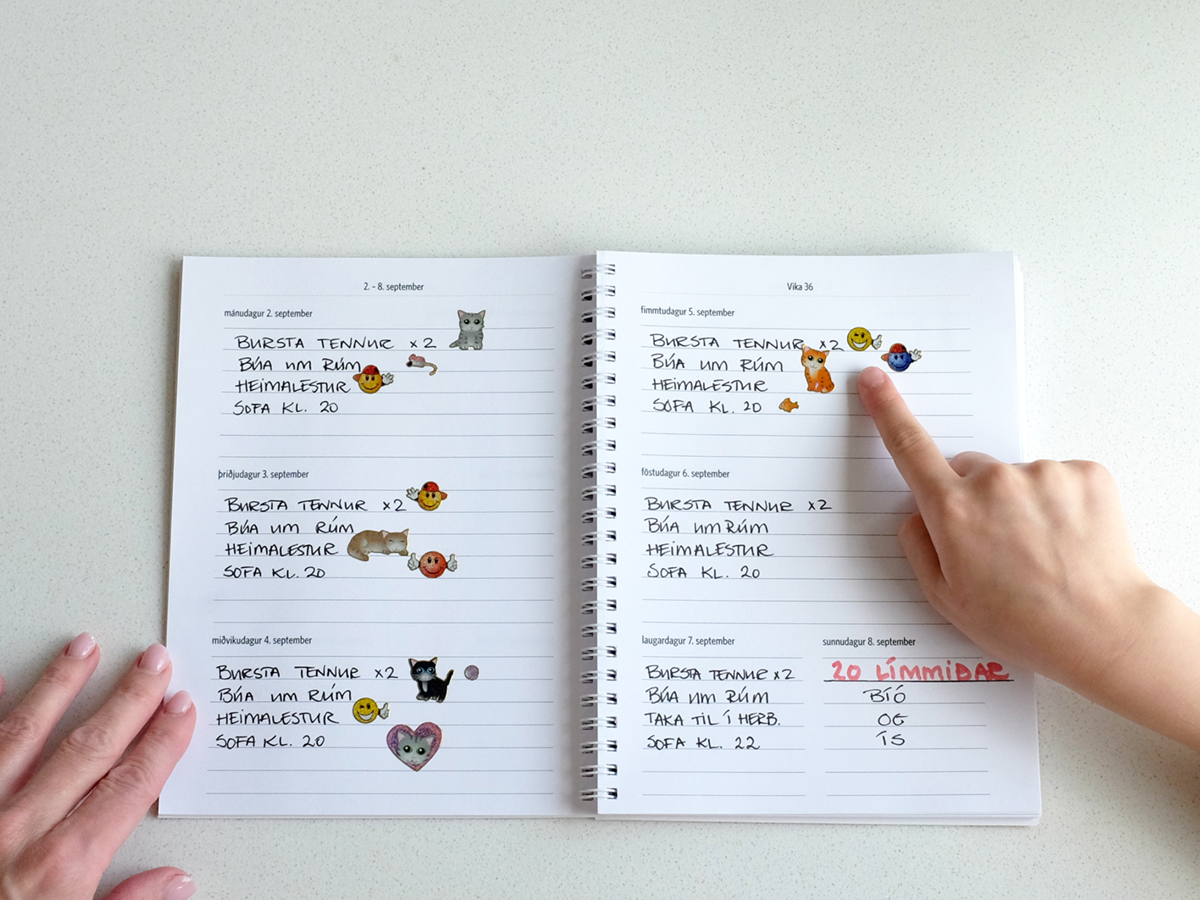 2. - 8. september
mánudagur 2. september
BURSTA TENNUR x2
BÚA UM RÚM
HEIMALESTUR
SOFA KL. 20
þriðjudagur 3. september
BURSTA TENNUR x2
BÚA UM RÚM
HEIMALESTUR
SOFA KL. 20
miðvikudagur 4. september
BURSTA TENNUR x2
BÚA UM RÚM
HEIMALESTUR
SOFA KL. 20
Vika 36
fimmtudagur 5. september
BURSTA TENNUR x2
BÚA UM RÚM
HEIMALESTUR
SOFA KL. 20
föstudagur 6. september
BURSTA TENNUR x2
BÚA UM RÚM
HEIMALESTUR
SOFA KL. 20
laugardagur 7. september
BURSTA TENNUR x2
BÚA UM RÚM
TAKA TIL Í HERB.
SOFA KL. 22
sunnudagur 8. september
20 LÍMMIÐAR
BÍÓ
OG
ÍS